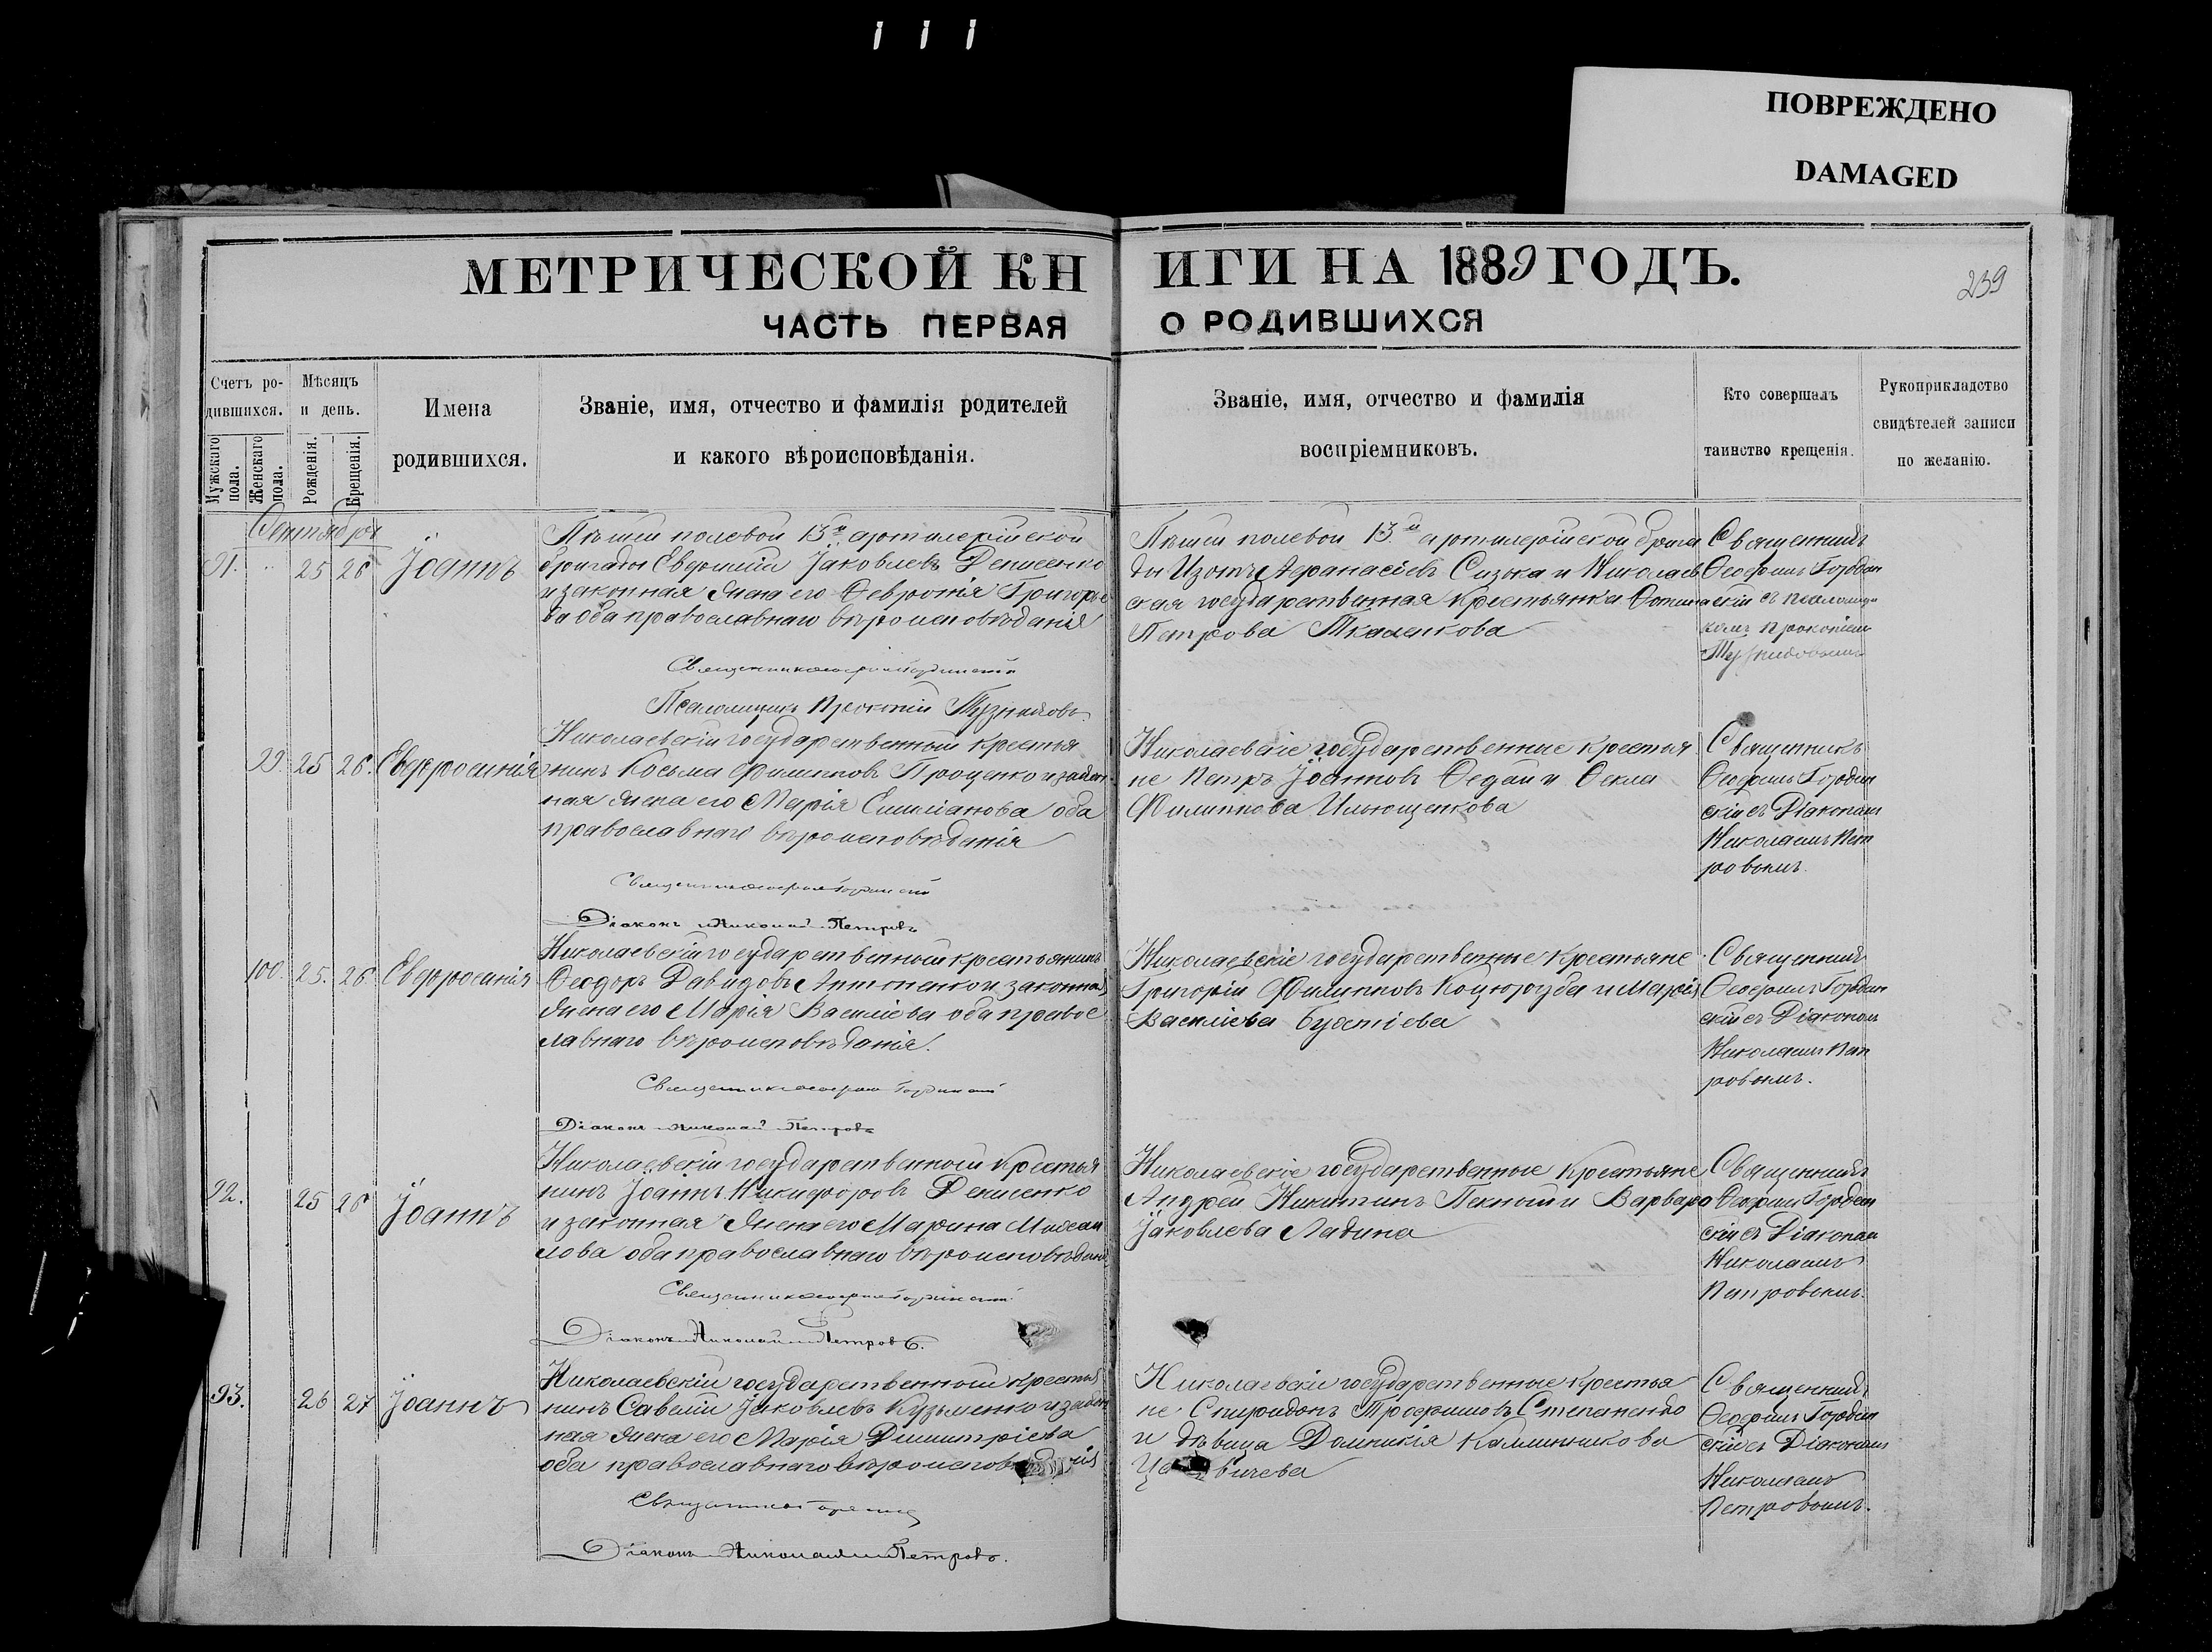 ПОВРЕЖДЕНО
DAMAGED
МЕТРИЧЕСКОЙ КНИГИ НА 1889 ГОДЪ.
239
ЧАСТЬ ПЕРВАЯ О РОДИВШИХСЯ
Счетъ ро-
дившихся.
Мужскаго
пола.
Женскаго
пола.
Мѣсяцъ
и день.
Рожденія.
Крещенія.
Имена
родившихся.
Званіе, имя, отчество и фамилія родителей
и какого вѣроисповѣданія.
Званіе, имя, отчество и фамилія
воспріемниковъ.
Кто совершалъ
таинство крещенія.
Рукоприкладство
свидѣтелей записи
по желанію.
Сентября
91.
25 26
Іоаннъ
Пѣшей полевой 13й артилерійской
бригады Евфимій Іаковлевъ Денисенко
и законная жена его Ѳевронія Григорье
ва оба православнаго вѣроисповѣданія
Священникъ
Псаломщикъ Прокопій
Пѣшей полевой 13й артилерійской брига
ды Изотъ Аѳанасіевъ Сизька и Николаев
ская государственная крестьянка
Петрова Ткаченкова
Священникъ
Ѳеофилъ
скій съ псаломщи
комъ Прокопіем
99. 25 26. Евфросинія
Николаевскій государственный крестья
нинъ Косьма Филиповъ Проценко и закон
ная жена его Марія Емиліанова оба
православнаго вѣроисповѣданія
Священникъ
Діаконъ Николай Петровъ
Николаевскіе государственные крестья
не Петръ Іоанновъ Ѳедай и Ѳекла
Филиппова Ильющенкова
Священникъ
Ѳеофилъ
скій съ Діаконом
Николаемъ Пет
ровымъ.
100. 25. 26. Евфросинія
Николаевскій государственный крестьянинъ
Ѳеодоръ Давидовъ Антоненко и законная
жена его Марія Василіева оба правос
лавнаго вѣроисповѣданія.
Священникъ
Діаконъ Николай Петровъ
Николаевскіе государственные крестьяне
Григорій Филипповъ Коцюруба и Марія
Василіева Бустіева
Священникъ
Ѳеофилъ
скій съ Діакономъ
Николаемъ Пет
ровымъ.
92. 25 26 Іоаннъ
Николаевскій государственный крестья
нинъ Іоаннъ Никифоровъ Денисенко
и законная жена его Марина Михаи
лова оба православнаго вѣроисповѣдан
Священникъ
Діаконъ Николай Петровъ.
Николаевскіе государственные крестьяне
Андрей Никитинъ Пекный и Варвара
Іаковлева Ладина
Священникъ
Ѳеофилъ
скій съ Діаконом
Николаемъ
Петровымъ.
93. 26 27 Іоаннъ
Николаевскій государственный крестья
нинъ Савелій Іаковлевъ Кузьменко и закон
ная жена его Марія Димитріева
оба православнаго вѣроисповѣданія
Священникъ
Діаконъ Николай Петровъ.
Николаевскіе государственные крестья
не Спиридонъ Трофимовъ Степаненко
и дѣвица Домникія Калинникова
Священникъ
Ѳеофилъ
скій съ Діакономъ
Николаемъ
Петровымъ.